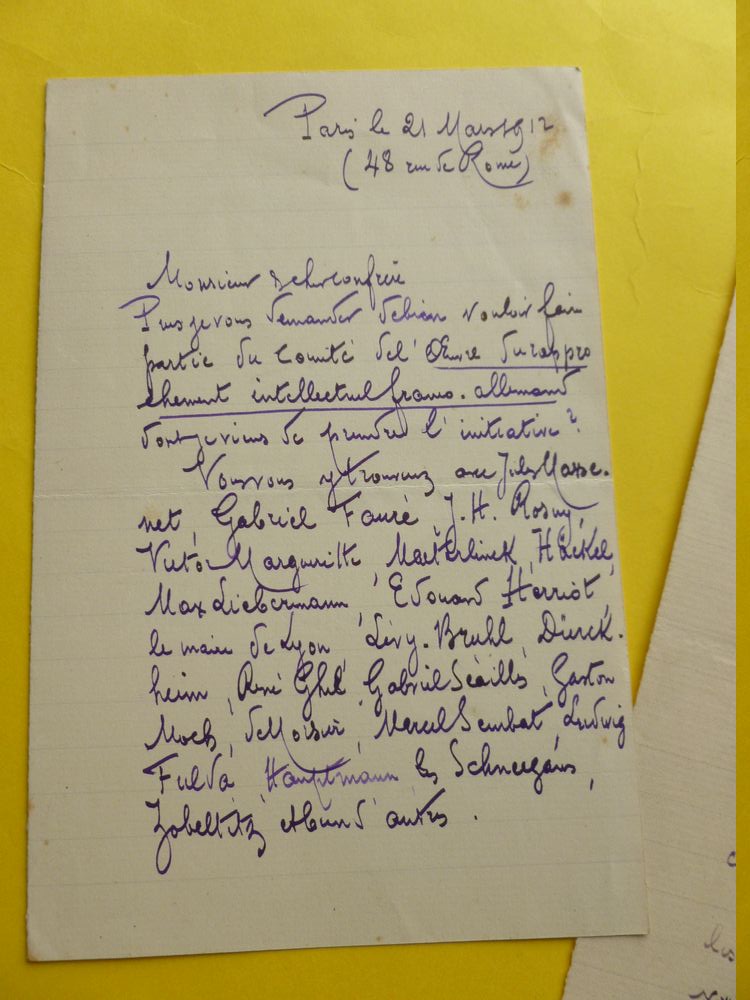 Paris le 21 Mars 1912
(48 rue de Rome)
Monsieur et cher confrère
Puis je vous demander de bien vouloir faire
partie du Comité de l'Œuvre du rappro
chement intellectuel franco-allemand
dont je viens de prendre l'initiative ?
Vous vous y trouverez avec Jules Masse-
net, Gabriel Fauré, J.H. Rosny,
Victor Margueritte, Maeterlinck, Häckel,
Max Liebermann, Edouard Herriot,
le maire de Lyon, Lévy-Bruhl, Dürck-
heim, René Ghil, Gabriel Séailles, Gaston
Moch, Marcel Sembat, Ludwig
Fulda, Hauptmann, les Schneegans,
Zobeltitz et bien d'autres.